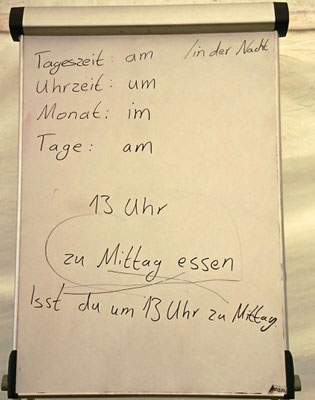 Tageszeit: am /in der Nacht
Uhrzeit: um
Monat: im
Tage: am
13 Uhr
zu Mittag essen
Isst du um 13 Uhr zu Mittag